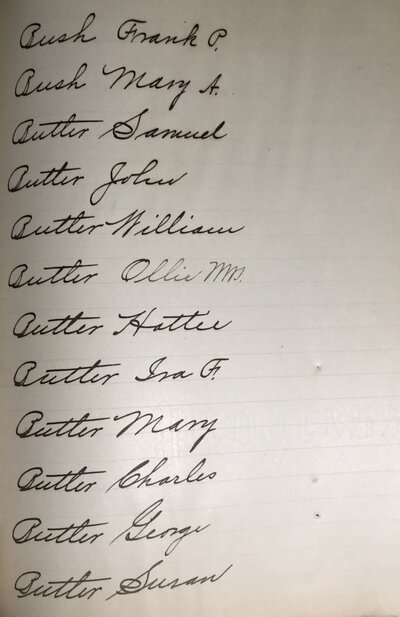 Bush Frank P.
Bush Mary A.
Butler Samuel
Butler John
Butler William
Butler Ollie Mrs.
Butler Hattie
Butler Ira F.
Butler Mary
Butler Charles
Butler George
Butler Susan